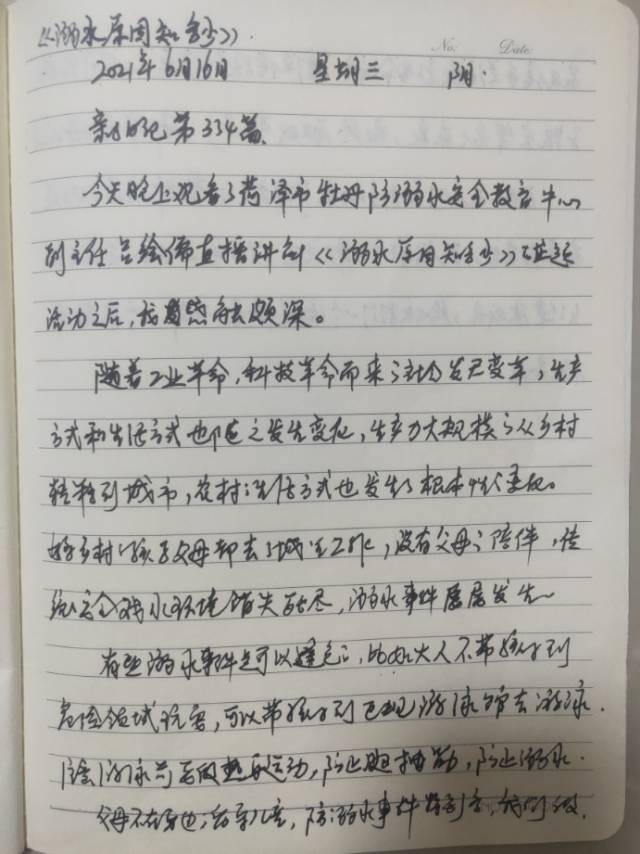 《溺水原因知多少》
No. Date.
2021年6月16日 星期三 阴.
亲子日记第334篇.
今天晚上观看了菏泽市牡丹防溺水安全教育中心
副主任 直播讲到《溺水原因知多少》
活动之后,我感触颇深。
随着工业革命,科技革命而来 变革,生产
方式和生活方式也随之发生变化,生产力大规模 从乡村
转移到城市,农村 生活方式也发生了根本性 。
乡村 孩子父母都去了城里工作,没有父母 陪伴,传
统安全戏水环境消失殆尽,溺水事件屡屡发生~
有些溺水事件是可以避免 ,比如大人不带孩子到
危险领域玩耍,可以带孩子到正规游泳馆去游泳.
游泳前 热身运动,防止腿抽筋,防止溺水.
父母不在身边 儿童,防溺水事件